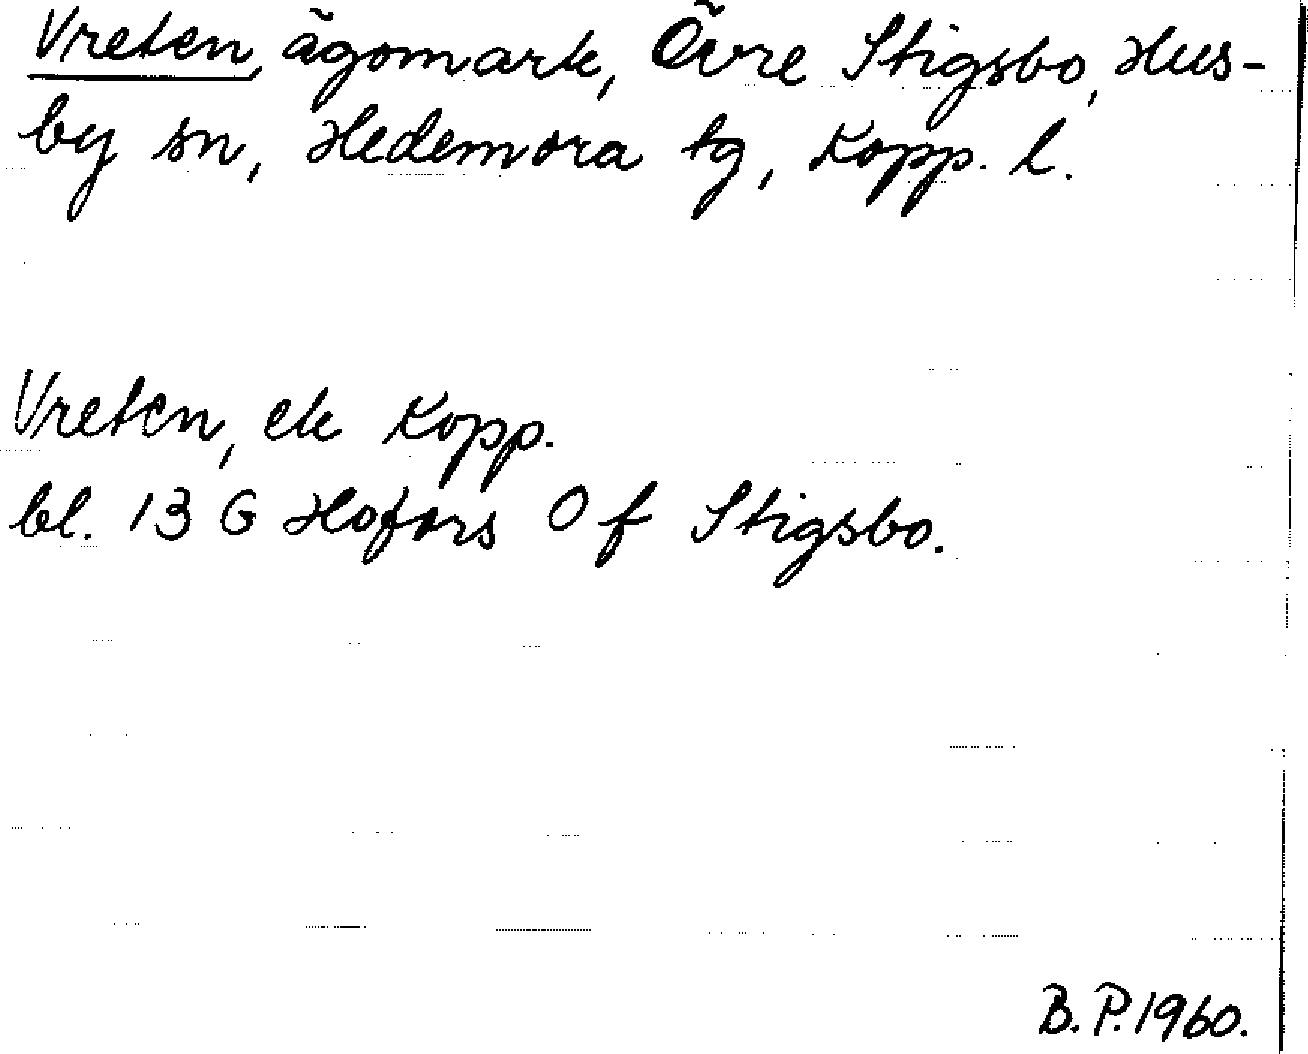 Vreten, ägomark, Övre Stigsbo, Hus-
by sn, Hedemora tg, Kopp. l.
Vreten, ek Kopp.
bl. 13 G Hofors 0 f Stigsbo.
B. P. 1960.